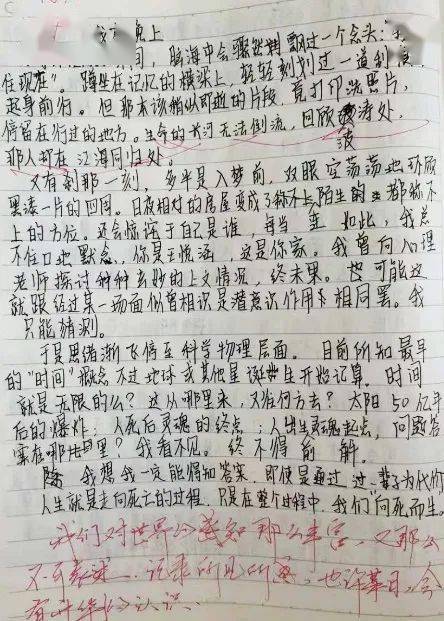 晚上
间，脑海中会骤然 飘过一个念头：
住现在”。蹲坐在记忆的横梁上，轻轻刻划过一道利
起身前行。但那本该稍纵即逝的片段，竟打印洗黑片，
停留在行过的地方。生命的长河无法倒流，回顾波涛处，
那人都在江海同归处。
又有刹那一刻，多半是入梦前，双眼空荡荡地环顾
黑漆一片的四周。日夜相对的房屋变成了称不上陌生的 都称不
上的方位。还会惊讶于自己是谁，每当 如此，我总
不住口地默念，你是王悦涵，这是你家。我曾向心理
老师探讨种种玄妙的上文情况，终未果。也可能这
就跟经过某一场面似曾相识是潜意识作用相同罢。我
只能猜测。
于是思绪渐飞停至科学物理层面。目前所知最早
的“时间”概念不过地球或其他星诞生开始记算。时间
就是无限的么？这从哪里来，又往何方去？太阳50亿年
后的爆炸；人死后灵魂的终点；人出生灵魂起点，问题答
案在哪里？我看不见。终不得解。
我想我一定能得知答案，即使是通过 过一辈子为代价
人生就是走向死亡的过程，只是在整个过程中，我们“向死而生。
我们对世界的感知那么丰富，又那么
不可表述…记录所见所感，也许某日，会
有 认识。